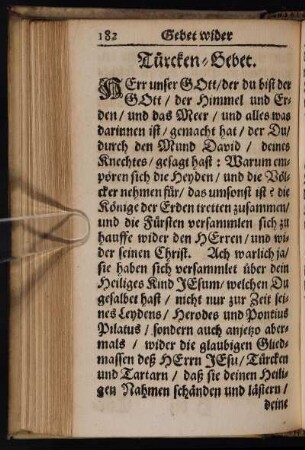 182 Gebet wider
Türcken-Gebet.
HErr unser GOtt/der du bist der
GOtt / der Himmel und Er-
den / und das Meer / und alles was
darinnen ist / gemacht hat / der Du/
durch den Mund David / deines
Knechtes / gesagt hast : Warum em-
pören sich die Heyden / und die Völ-
cker nehmen für / das umsonst ist ? die
Könige der Erden tretten zusammen/
und die Fürsten versammlen sich zu
hauffe wider den HErren / und wi-
der seinen Christ. Ach warlich ja/
sie haben sich versammlet über dein
Heiliges Kind JEsum/ welchen Du
gesalbet hast / nicht nur zur Zeit sei-
nes Leydens / Herodes und Pontius
Pilatus / sondern auch anjetzo aber-
mals / wider die glaubigen Glied-
massen deß HErrn JEsu / Türcken
und Tartarn / daß sie deinen Heili-
gen Nahmen schänden und lästern /
deine